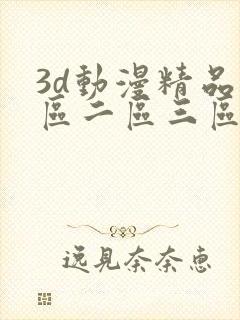 3d動漫精品
區二區三區
逸見奈奈惠